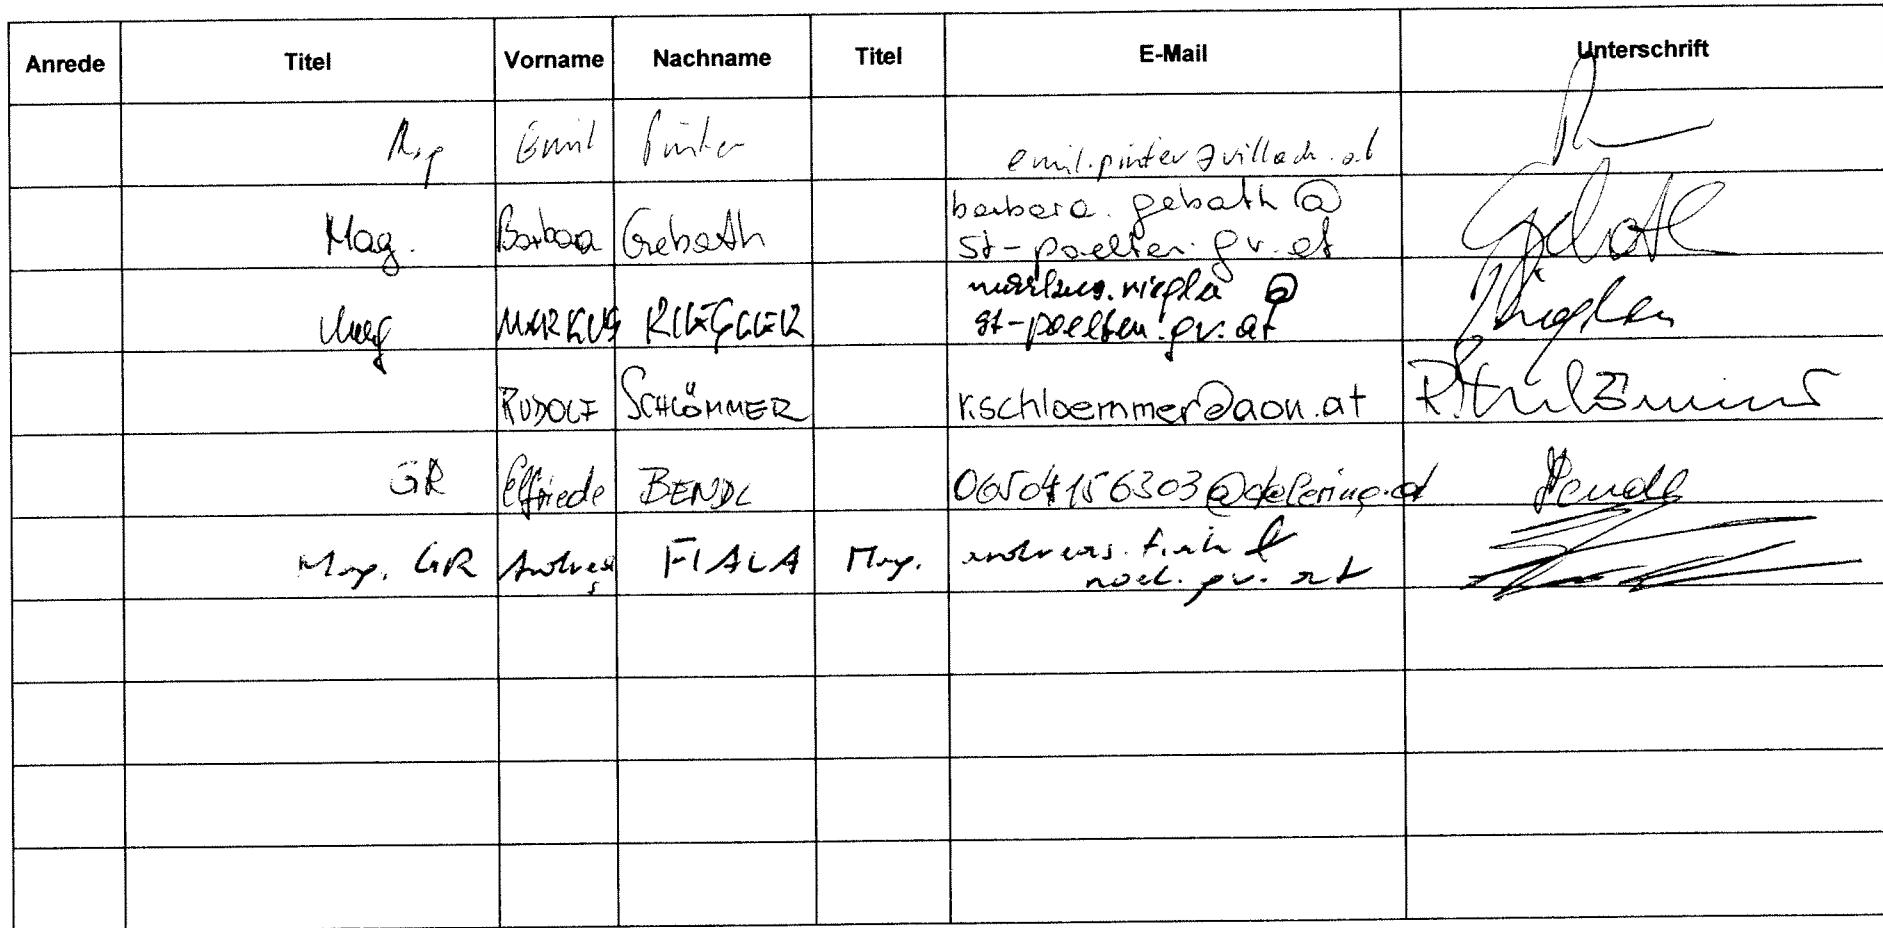 Anrede Titel Vorname Nachname Titel E-Mail Unterschrift
Emil Pinter emil.pinter@villach.at
Mag. Barbara Gebath barbara.gebath @
st-poelten.gv.at
Mag MARKUS RIEGLER markus.riegler @
st-poelten.gv.at
RUDOLF SCHLÖMMER r.schloemmer@aon.at
GR Elfriede BENDL 06504156303@
Mag. GR Andreas FIALA Mag. andreas.fiala @
noel.gv.at